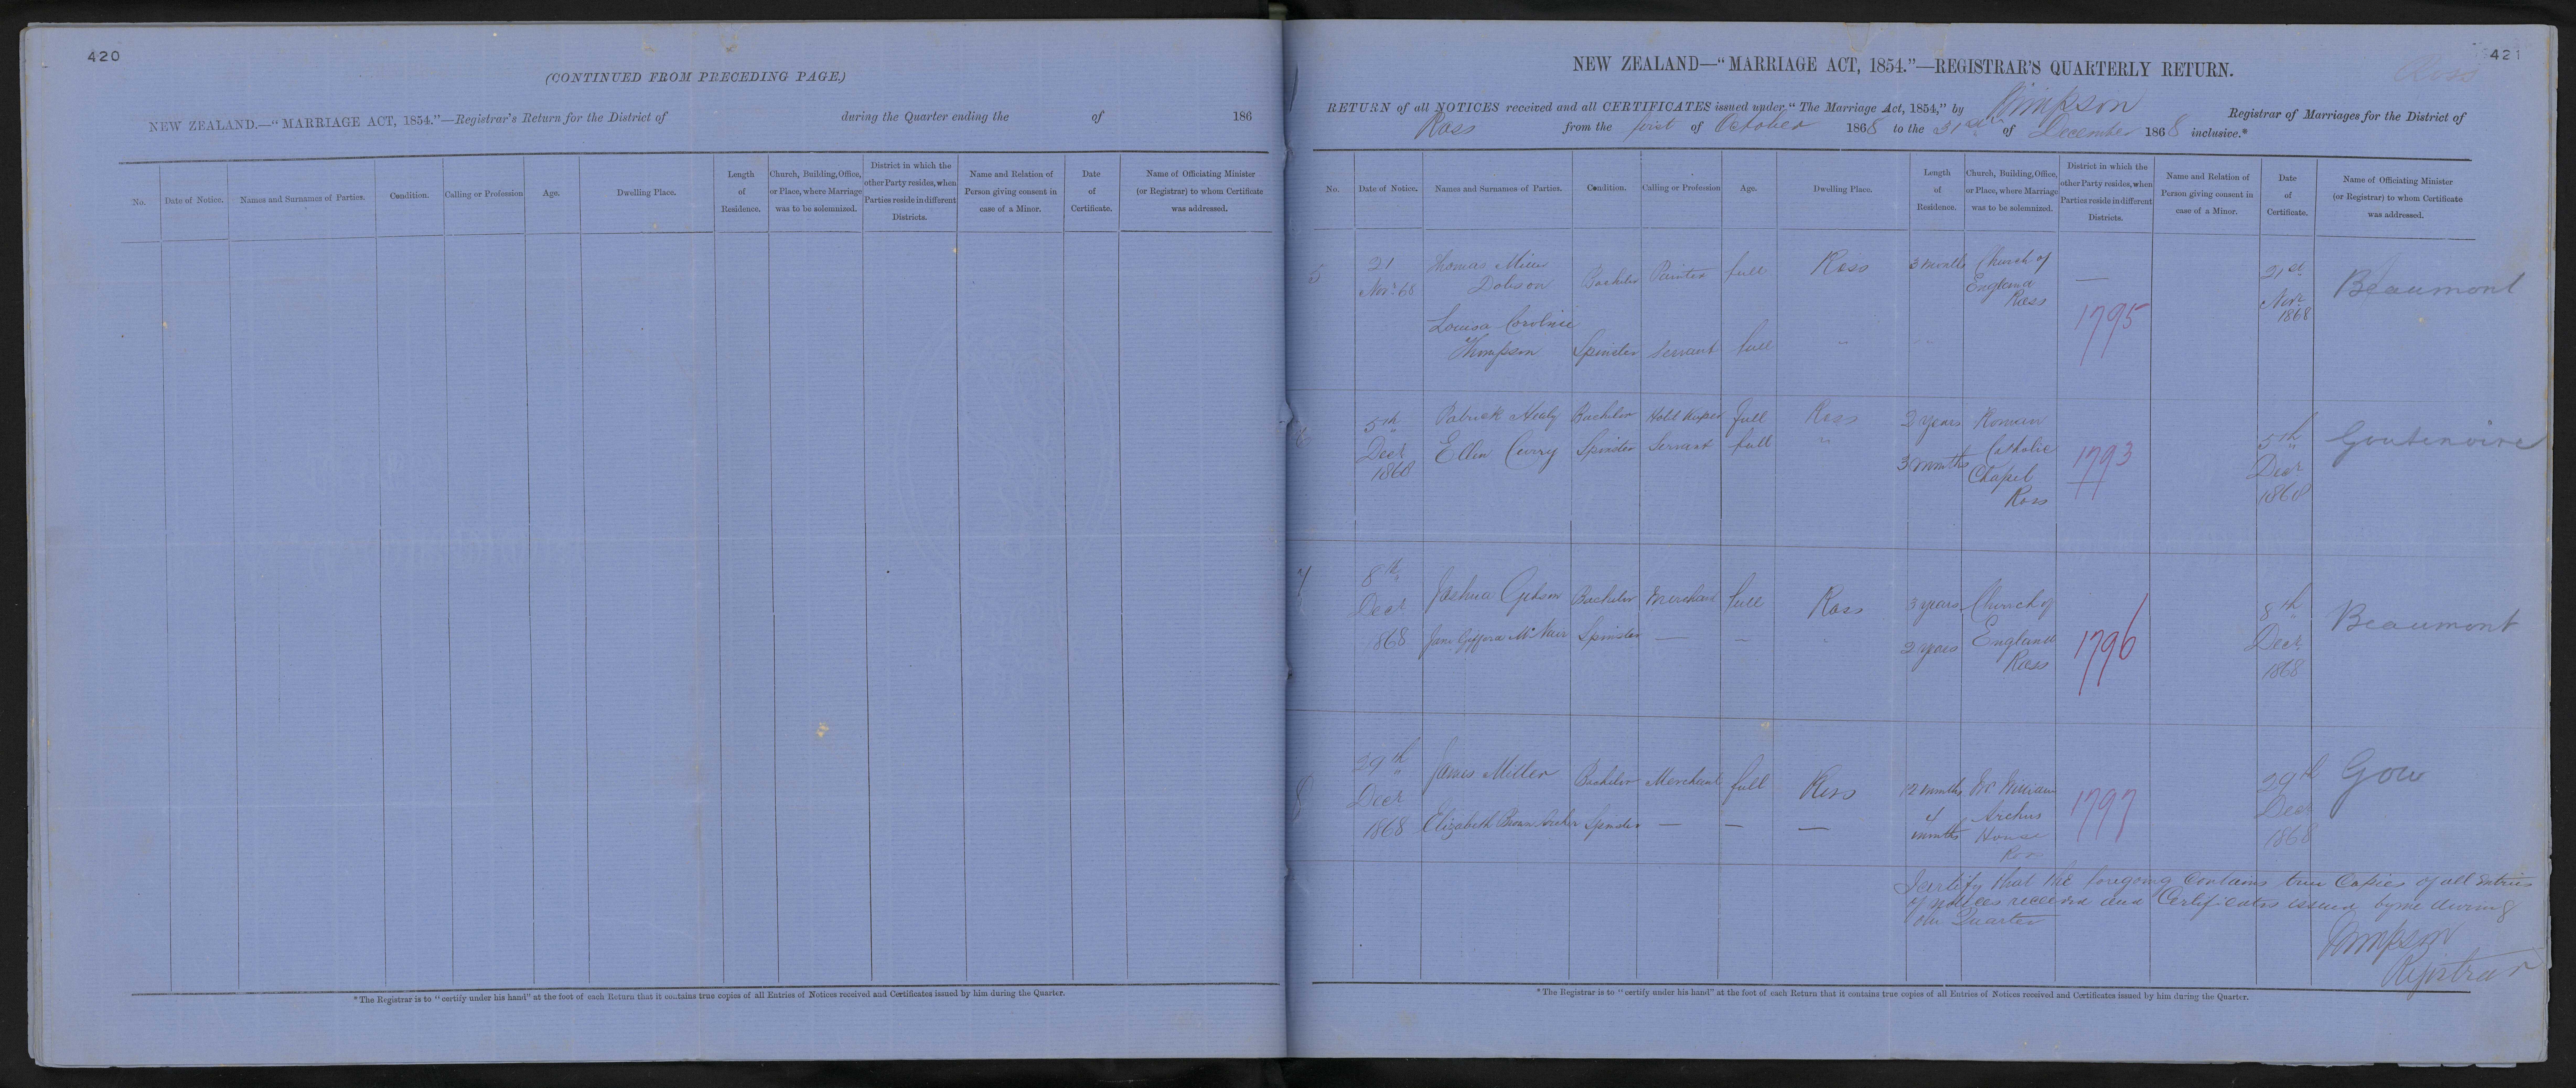 420
(CONTINUED FROM PRECEDING PAGE.)
NEW ZEALAND.—"MARRIAGE ACT, 1854."—Registrar's Return for the District of during the Quarter ending the of 186
No. Date of Notice. Names and Surnames of Parties. Condition. Calling or Profession Age. Dwelling Place. Length of Residence. Church, Building, Office, or Place, where Marriage was to be solemnized. District in which the other Party resides, when Parties reside in different Districts. Name and Relation of Person giving consent in case of a Minor. Date of Certificate. Name of Officiating Minister (or Registrar) to whom Certificate was addressed.
* The Registrar is to "certify under his hand" at the foot of each Return that it contains true copies of all Entries of Notices received and Certificates issued by him during the Quarter.
421
Ross
NEW ZEALAND—"MARRIAGE ACT, 1854."—REGISTRAR'S QUARTERLY RETURN.
RETURN of all NOTICES received and all CERTIFICATES issued under "The Marriage Act, 1854," by Simpson Registrar of Marriages for the District of
Ross from the first of October 1868 to the 31st of December 1868 inclusive.*
No. Date of Notice. Names and Surnames of Parties. Condition. Calling or Profession Age. Dwelling Place. Length of Residence. Church, Building, Office, or Place, where Marriage was to be solemnized. District in which the other Party resides, when Parties reside in different Districts. Name and Relation of Person giving consent in case of a Minor. Date of Certificate. Name of Officiating Minister (or Registrar) to whom Certificate was addressed.
5 21 Novr 68 Thomas Dobson Bachelor Painter full Ross 3 months Church of England Ross — 21st Novr 1868 Beaumont
Louisa Caroline Thompson Spinster Servant full " " 1795
6 5th Decr 1868 Patrick Healy Bachelor Hotel Keeper full Ross 2 years Roman Catholic Chapel Ross 1793 5th Decr 1868 Goutenoire
Ellen Curry Spinster Servant full " 3 months
7 8th Decr 1868 Joshua Gibson Bachelor Merchant full Ross 3 years Church of England Ross 1796 8th Decr 1868 Beaumont
Jane Gifford McNair Spinster — — " 2 years
8 29th Decr 1868 James Miller Bachelor Merchant full Ross 12 months Mr William Archers House Ross 1797 29th Decr 1868 Gow
Elizabeth Brown Archer Spinster — — — 4 months
I certify that the foregoing contains true Copies of all Entries
of notices received and Certificates issued by me during
the Quarter
Simpson
Registrar
* The Registrar is to "certify under his hand" at the foot of each Return that it contains true copies of all Entries of Notices received and Certificates issued by him during the Quarter.